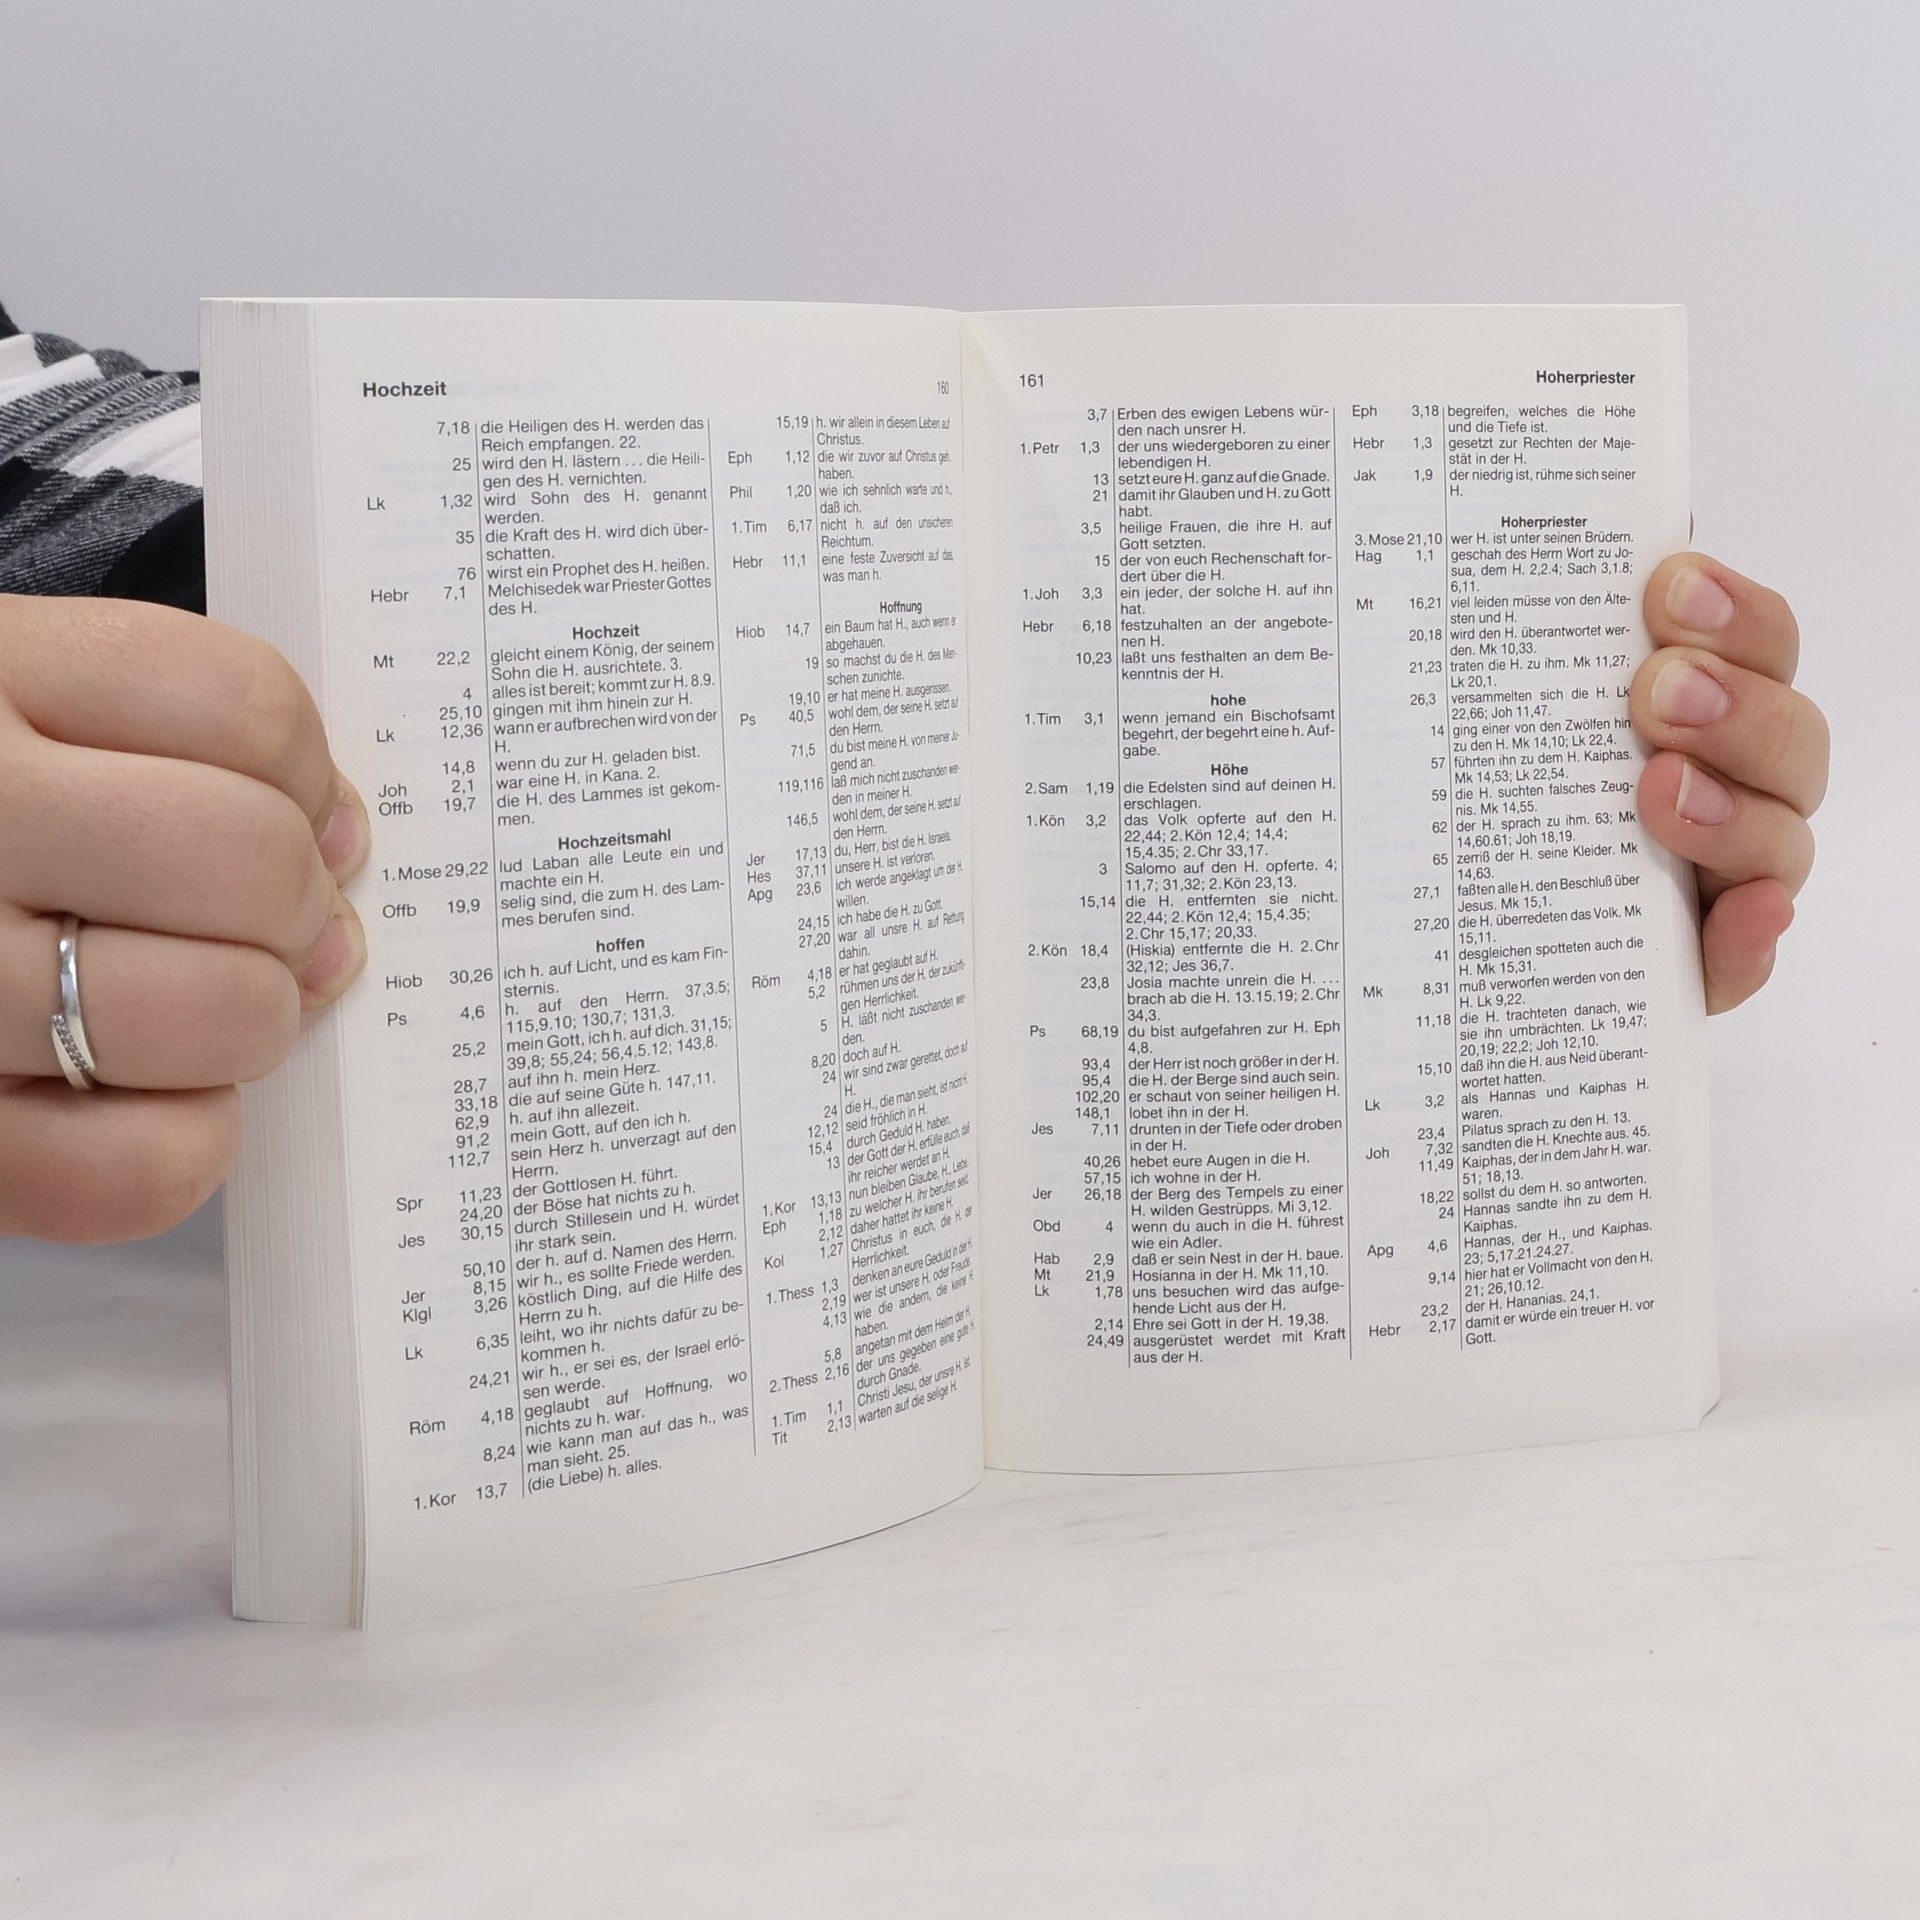 Hochzeit
160
7,18 die Heiligen des H. werden das
Reich empfangen. 22.
25 wird den H. lästern ... die Heili-
gen des H. vernichten.
Lk 1,32 wird Sohn des H. genannt
werden.
35 die Kraft des H. wird dich über-
schatten.
76 wirst ein Prophet des H. heißen.
Hebr 7,1 Melchisedek war Priester Gottes
des H.
Hochzeit
Mt 22,2 gleicht einem König, der seinem
Sohn die H. ausrichtete. 3.
4 alles ist bereit; kommt zur H. 8.9.
25,10 gingen mit ihm hinein zur H.
Lk 12,36 wann er aufbrechen wird von der
H.
14,8 wenn du zur H. geladen bist.
Joh 2,1 war eine H. in Kana. 2.
Offb 19,7 die H. des Lammes ist gekom-
men.
Hochzeitsmahl
1.Mose 29,22 lud Laban alle Leute ein und
machte ein H.
Offb 19,9 selig sind, die zum H. des Lam-
mes berufen sind.
hoffen
Hiob 30,26 ich h. auf Licht, und es kam Fin-
sternis.
Ps 4,6 h. auf den Herrn. 37,3.5;
115,9.10; 130,7; 131,3.
25,2 mein Gott, ich h. auf dich. 31,15;
39,8; 55,24; 56,4.5.12; 143,8.
28,7 auf ihn h. mein Herz.
33,18 die auf seine Güte h. 147,11.
62,9 h. auf ihn allezeit.
91,2 mein Gott, auf den ich h.
112,7 sein Herz h. unverzagt auf den
Herrn.
Spr 11,23 der Gottlosen H. führt.
24,20 der Böse hat nichts zu h.
Jes 30,15 durch Stillesein und H. würdet
ihr stark sein.
50,10 der h. auf d. Namen des Herrn.
Jer 8,15 wir h., es sollte Friede werden.
Klgl 3,26 köstlich Ding, auf die Hilfe des
Herrn zu h.
Lk 6,35 leiht, wo ihr nichts dafür zu be-
kommen h.
24,21 wir h., er sei es, der Israel erlö-
sen werde.
Röm 4,18 geglaubt auf Hoffnung, wo
nichts zu h. war.
8,24 wie kann man auf das h., was
man sieht. 25.
1.Kor 13,7 (die Liebe) h. alles.
15,19 h. wir allein in diesem Leben auf
Christus.
Eph 1,12 die wir zuvor auf Christus geh.
haben.
Phil 1,20 wie ich sehnlich warte und h.,
daß ich.
1.Tim 6,17 nicht h. auf den unsicheren
Reichtum.
Hebr 11,1 eine feste Zuversicht auf das,
was man h.
Hoffnung
Hiob 14,7 ein Baum hat H., auch wenn er
abgehauen.
19 so machst du die H. des Men-
schen zunichte.
19,10 er hat meine H. ausgerissen.
Ps 40,5 wohl dem, der seine H. setzt auf
den Herrn.
71,5 du bist meine H. von meiner Ju-
gend an.
119,116 laß mich nicht zuschanden wer-
den in meiner H.
146,5 wohl dem, der seine H. setzt auf
den Herrn.
Jer 17,13 du, Herr, bist die H. Israels.
Hes 37,11 unsere H. ist verloren.
Apg 23,6 ich werde angeklagt um der H.
willen.
24,15 ich habe die H. zu Gott.
27,20 war all unsre H. auf Rettung
dahin.
Röm 4,18 er hat geglaubt auf H.
5,2 rühmen uns der H. der zukünfti-
gen Herrlichkeit.
5 H. läßt nicht zuschanden wer-
den.
8,20 doch auf H.
24 wir sind zwar gerettet, doch auf
H.
24 die H., die man sieht, ist nicht H.
12,12 seid fröhlich in H.
15,4 durch Geduld H. haben.
13 der Gott der H. erfülle euch, daß
ihr reicher werdet an H.
1.Kor 13,13 nun bleiben Glaube, H., Liebe.
Eph 1,18 zu welcher H. ihr berufen seid.
2,12 daher hattet ihr keine H.
Kol 1,27 Christus in euch, die H. der
Herrlichkeit.
1.Thess 1,3 denken an eure Geduld in der H.
2,19 wer ist unsere H. oder Freude.
4,13 wie die andern, die keine H.
haben.
5,8 angetan mit dem Helm der H.
2.Thess 2,16 der uns gegeben eine gute H.
durch Gnade.
1.Tim 1,1 Christi Jesu, der unsre H. ist.
Tit 2,13 warten auf die selige H.
161
Hoherpriester
3,7 Erben des ewigen Lebens wür-
den nach unsrer H.
1.Petr 1,3 der uns wiedergeboren zu einer
lebendigen H.
13 setzt eure H. ganz auf die Gnade.
21 damit ihr Glauben und H. zu Gott
habt.
3,5 heilige Frauen, die ihre H. auf
Gott setzten.
15 der von euch Rechenschaft for-
dert über die H.
1.Joh 3,3 ein jeder, der solche H. auf ihn
hat.
Hebr 6,18 festzuhalten an der angebote-
nen H.
10,23 laßt uns festhalten an dem Be-
kenntnis der H.
hohe
1.Tim 3,1 wenn jemand ein Bischofsamt
begehrt, der begehrt eine h. Auf-
gabe.
Höhe
2.Sam 1,19 die Edelsten sind auf deinen H.
erschlagen.
1.Kön 3,2 das Volk opferte auf den H.
22,44; 2.Kön 12,4; 14,4;
15,4.35; 2.Chr 33,17.
3 Salomo auf den H. opferte. 4;
11,7; 31,32; 2.Kön 23,13.
15,14 die H. entfernten sie nicht.
22,44; 2.Kön 12,4; 15,4.35;
2.Chr 15,17; 20,33.
2.Kön 18,4 (Hiskia) entfernte die H. 2.Chr
32,12; Jes 36,7.
23,8 Josia machte unrein die H. ...
brach ab die H. 13.15.19; 2.Chr
34,3.
Ps 68,19 du bist aufgefahren zur H. Eph
4,8.
93,4 der Herr ist noch größer in der H.
95,4 die H. der Berge sind auch sein.
102,20 er schaut von seiner heiligen H.
148,1 lobet ihn in der H.
Jes 7,11 drunten in der Tiefe oder droben
in der H.
40,26 hebet eure Augen in die H.
57,15 ich wohne in der H.
Jer 26,18 der Berg des Tempels zu einer
H. wilden Gestrüpps. Mi 3,12.
Obd 4 wenn du auch in die H. führest
wie ein Adler.
Hab 2,9 daß er sein Nest in der H. baue.
Mt 21,9 Hosianna in der H. Mk 11,10.
Lk 1,78 uns besuchen wird das aufge-
hende Licht aus der H.
2,14 Ehre sei Gott in der H. 19,38.
24,49 ausgerüstet werdet mit Kraft
aus der H.
Eph 3,18 begreifen, welches die Höhe
und die Tiefe ist.
Hebr 1,3 gesetzt zur Rechten der Maje-
stät in der H.
Jak 1,9 der niedrig ist, rühme sich seiner
H.
Hoherpriester
3.Mose 21,10 wer H. ist unter seinen Brüdern.
Hag 1,1 geschah des Herrn Wort zu Jo-
sua, dem H. 2,2.4; Sach 3,1.8;
6,11.
Mt 16,21 viel leiden müsse von den Älte-
sten und H.
20,18 wird den H. überantwortet wer-
den. Mk 10,33.
21,23 traten die H. zu ihm. Mk 11,27;
Lk 20,1.
26,3 versammelten sich die H. Lk
22,66; Joh 11,47.
14 ging einer von den Zwölfen hin
zu den H. Mk 14,10; Lk 22,4.
57 führten ihn zu dem H. Kaiphas.
Mk 14,53; Lk 22,54.
59 die H. suchten falsches Zeug-
nis. Mk 14,55.
62 der H. sprach zu ihm. 63; Mk
14,60.61; Joh 18,19.
65 zerriß der H. seine Kleider. Mk
14,63.
27,1 faßten alle H. den Beschluß über
Jesus. Mk 15,1.
27,20 die H. überredeten das Volk. Mk
15,11.
41 desgleichen spotteten auch die
H. Mk 15,31.
Mk 8,31 muß verworfen werden von den
H. Lk 9,22.
11,18 die H. trachteten danach, wie
sie ihn umbrächten. Lk 19,47;
20,19; 22,2; Joh 12,10.
15,10 daß ihn die H. aus Neid überant-
wortet hatten.
Lk 3,2 als Hannas und Kaiphas H.
waren.
23,4 Pilatus sprach zu den H. 13.
Joh 7,32 sandten die H. Knechte aus. 45.
11,49 Kaiphas, der in dem Jahr H. war.
51; 18,13.
18,22 sollst du dem H. so antworten.
24 Hannas sandte ihn zu dem H.
Kaiphas.
Apg 4,6 Hannas, der H., und Kaiphas.
23; 5,17.21.24.27.
9,14 hier hat er Vollmacht von den H.
21; 26,10.12.
23,2 der H. Hananias. 24,1.
Hebr 2,17 damit er würde ein treuer H. vor
Gott.